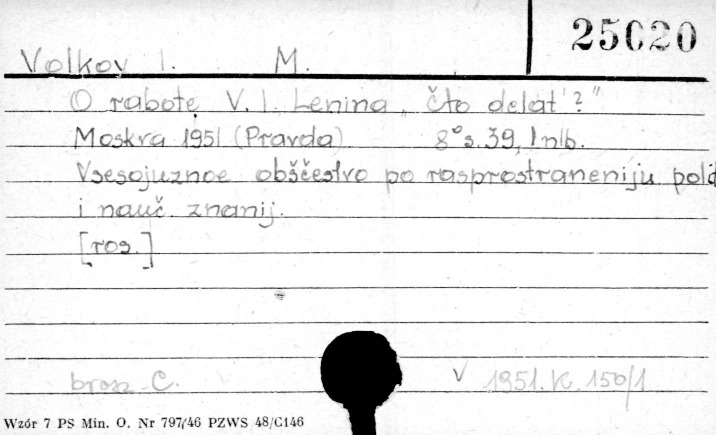 25620
Volkov I. M.
O rabote V. I. Lenina „Čto delat'?"
Moskva 1951 (Pravda) 8° s. 39, 1 nlb.
Vsesojuznoe obščestvo po rasprostraneniju polit
i nauč. znanij.
[ros.]
brosz. C. V 1951. K. 150/1
Wzór 7 PS Min. O. Nr 797/46 PZWS 48/C146